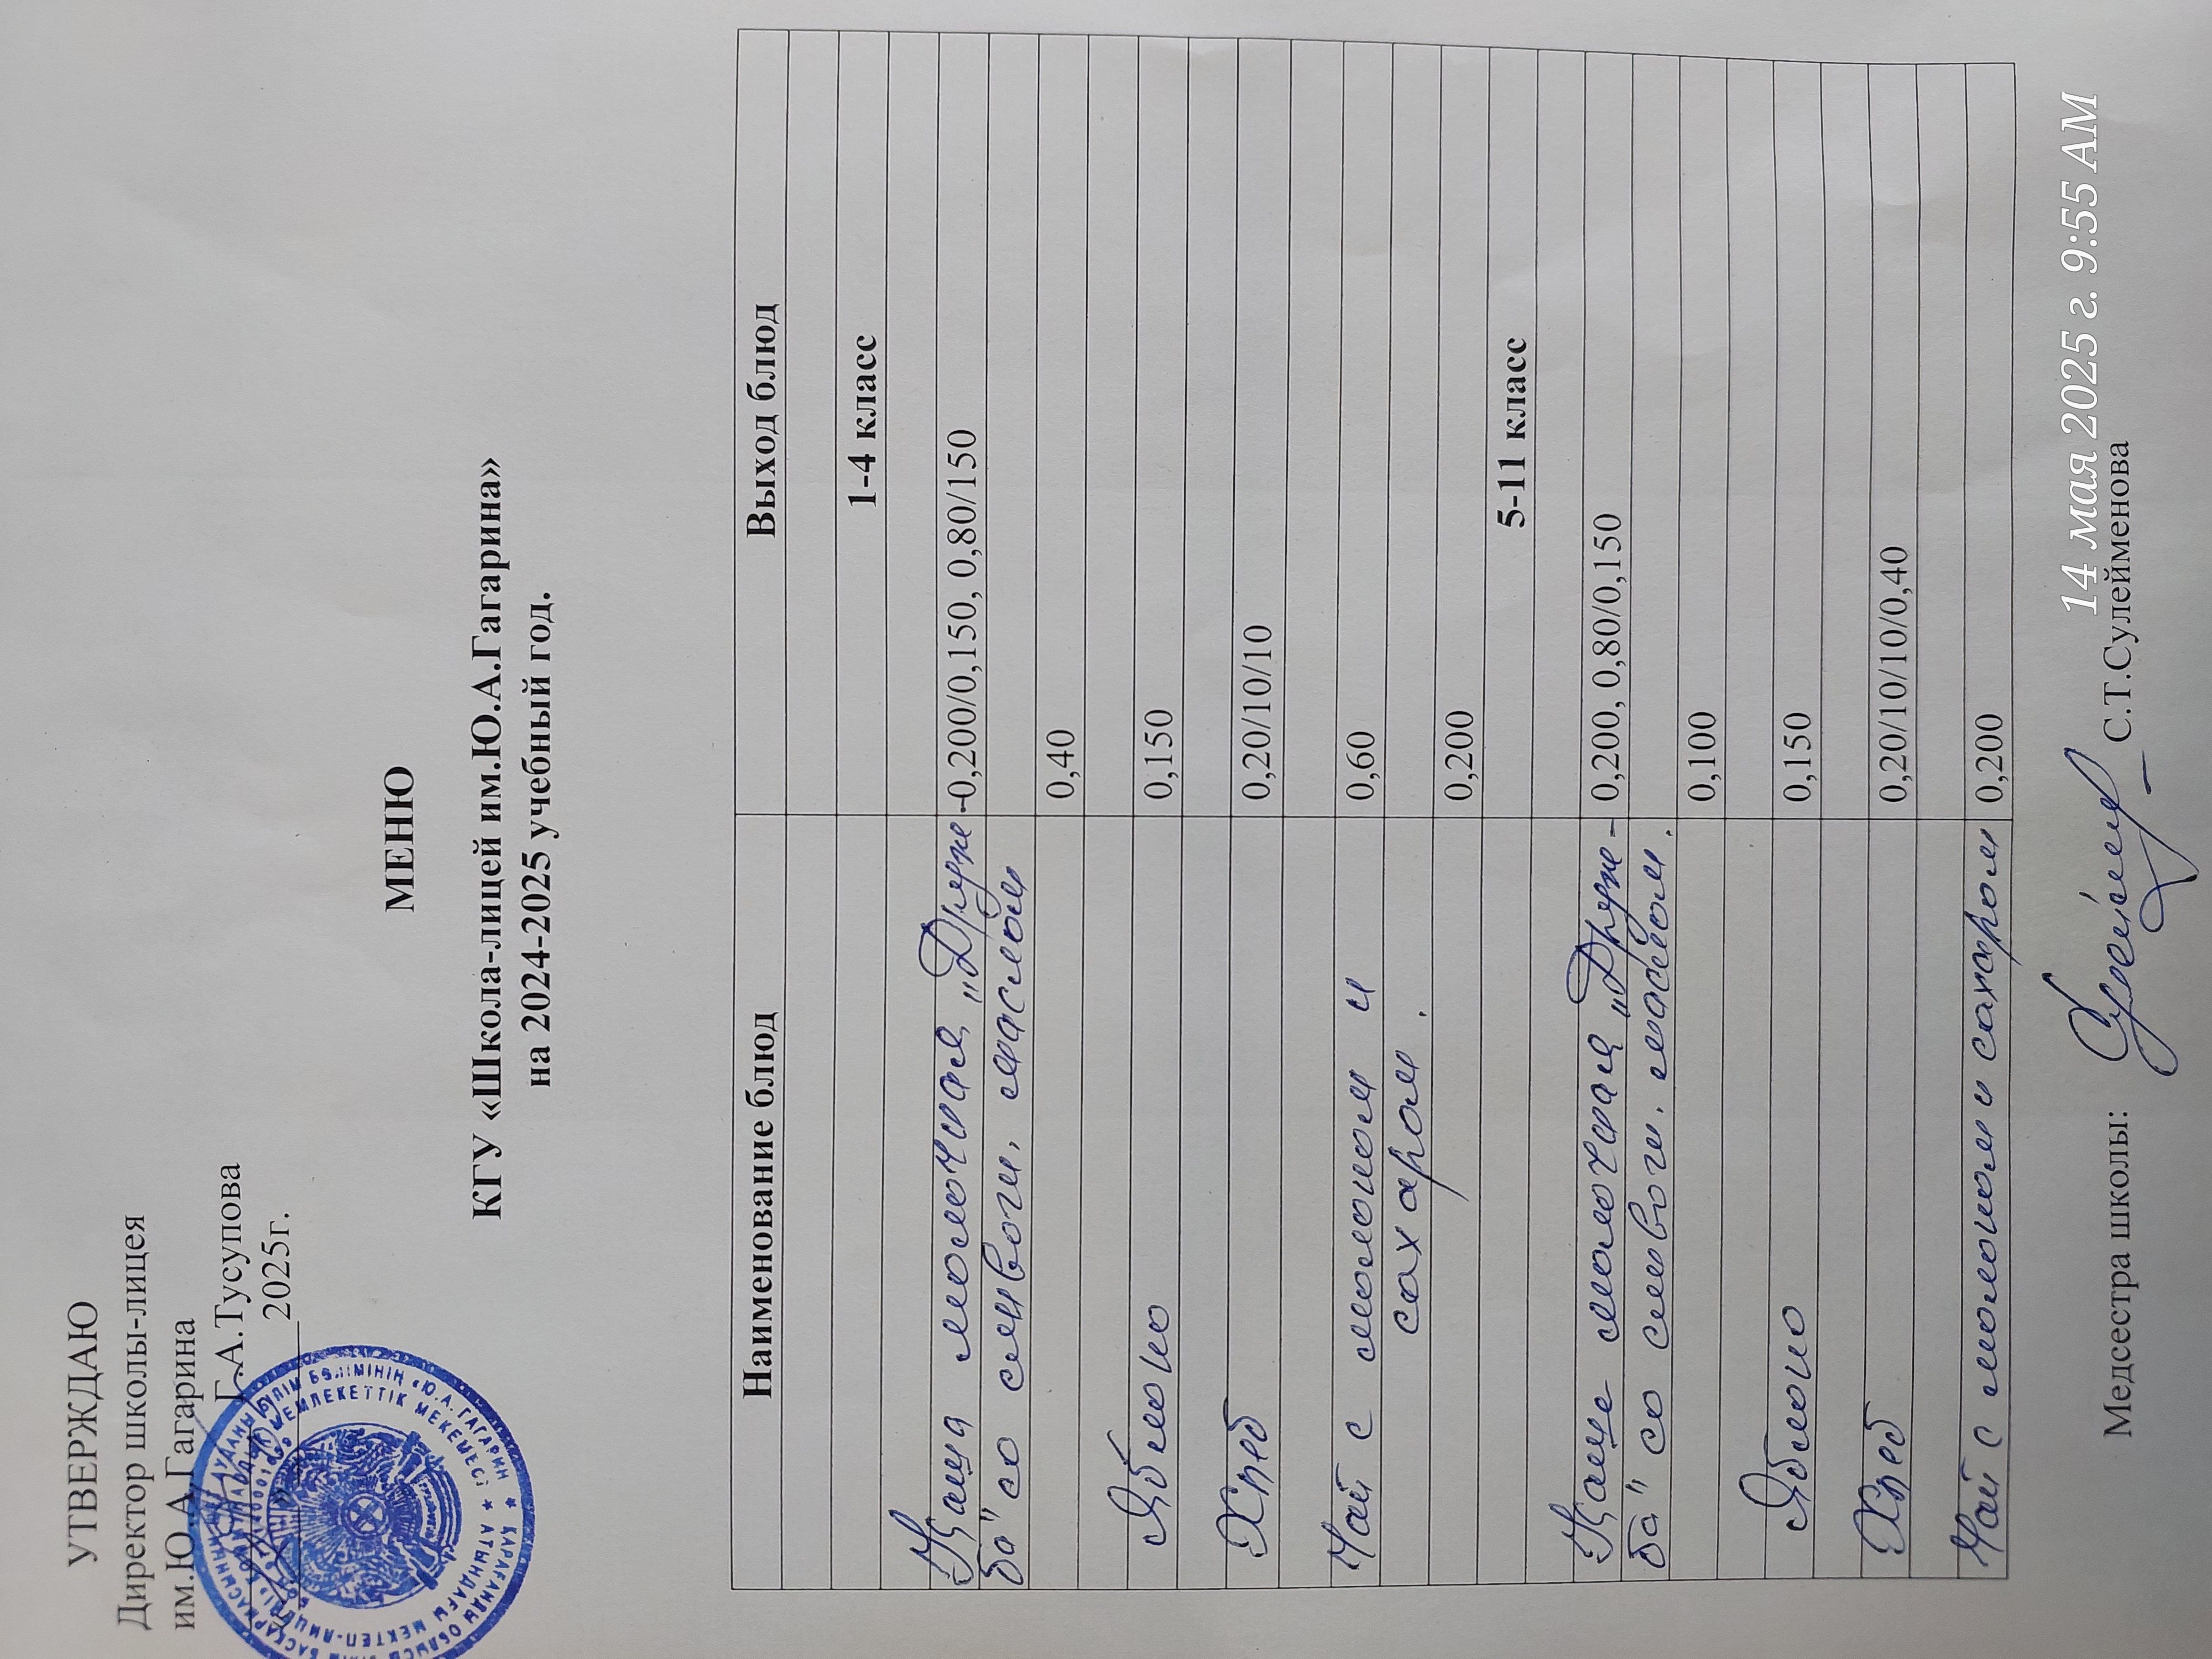 УТВЕРЖДАЮ
Директор школы-лицея
им.Ю.А.Гагарина
Г.А.Тусупова
2025г.
МЕНЮ
КГУ «Школа-лицей им.Ю.А.Гагарина»
на 2024-2025 учебный год.
Наименование блюд Выход блюд
1-4 класс
Каша молочная „Друж- 0,200/0,150, 0,80/150
ба" со сливочн. маслом
0,40
Яблоко 0,150
Хлеб 0,20/10/10
Чай с молоком и 0,60
сахаром.
0,200
5-11 класс
Каше молочная „Друж- 0,200, 0,80/0,150
ба" со сливочн. маслом.
0,100
Яблоко 0,150
Хлеб 0,20/10/10/0,40
Чай с молоком и сахаром 0,200
Медсестра школы: С.Т.Сулейменова
14 мая 2025 г. 9:55 AM